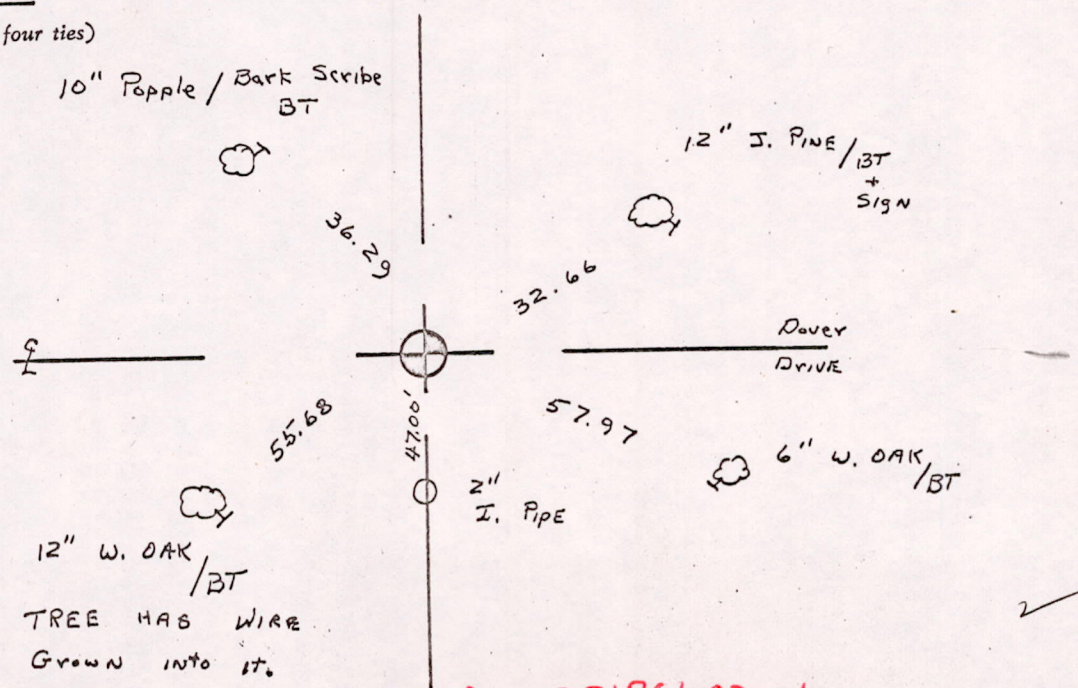 four ties)
10" Popple / Bark Scribe
BT
12" J. PINE / BT
+
SIgN
36.29
32.66
Dover
DrIVE
℄
55.68
47.00'
57.97
6" W. OAK / BT
2"
I. PIPE
12" W. OAK
/ BT
TREE HAS WIRE
Grown INto It.